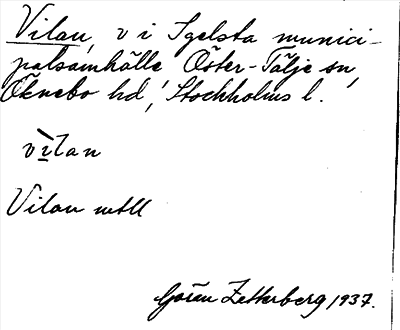 Vilan, v i Igelsta munici-
palsamhälle Öster-Tälje sn,
Öknebo hd, Stockholms l.
vìlan
Vilan mtll
Göran Zetterberg 1937.